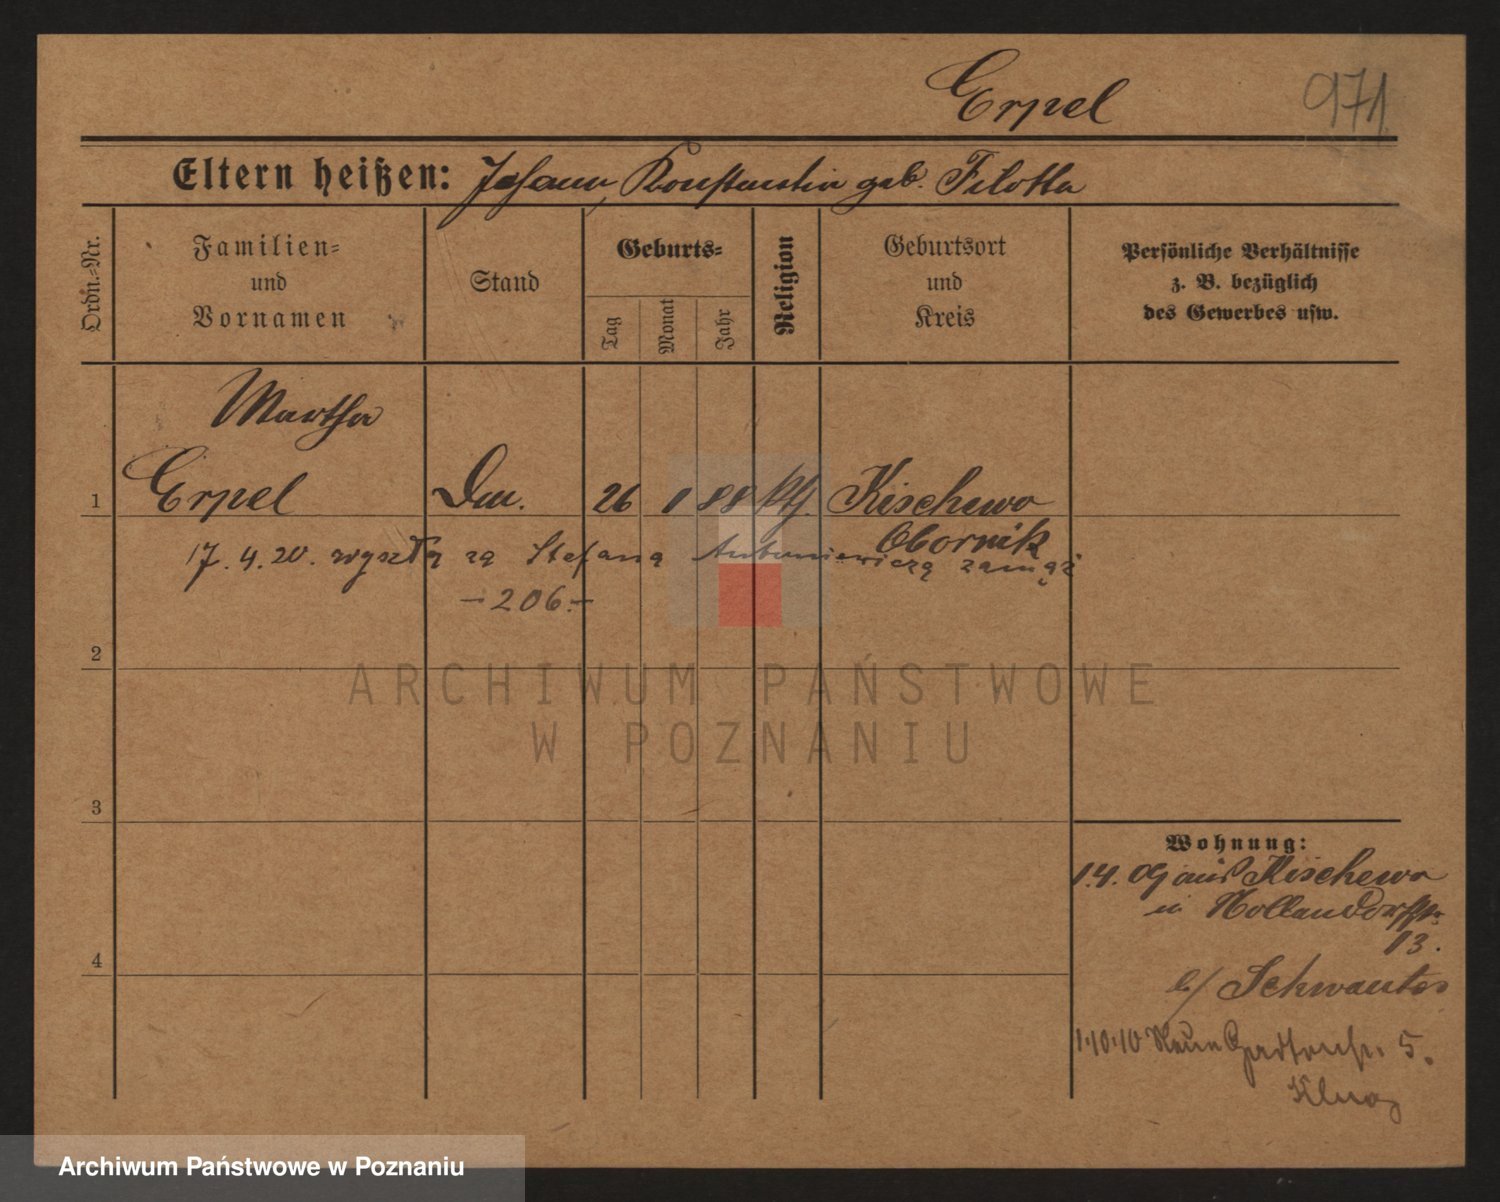 Erpel
971
Eltern heißen: Johann, Konstantin geb. Filotta
Ordn.-Nr.
Familien-
und
Vornamen
Stand
Geburts-
Tag
Monat
Jahr
Religion
Geburtsort
und
Kreis
Persönliche Verhältnisse
z. B. bezüglich
des Gewerbes usw.
Martha
1 Erpel 26 1 88 kth. Kischewo
Obornik
17.4.20. wyszła za Stefana Antoniewicza zamąż
– 206. –
2
3
4
Wohnung:
1.4.09 aus Kischewo
in Hollandorfstr.
13.
b/ Schwantes
1.10.10 Neue Gartenstr. 5.
ARCHIWUM PAŃSTWOWE
W POZNANIU
Archiwum Państwowe w Poznaniu